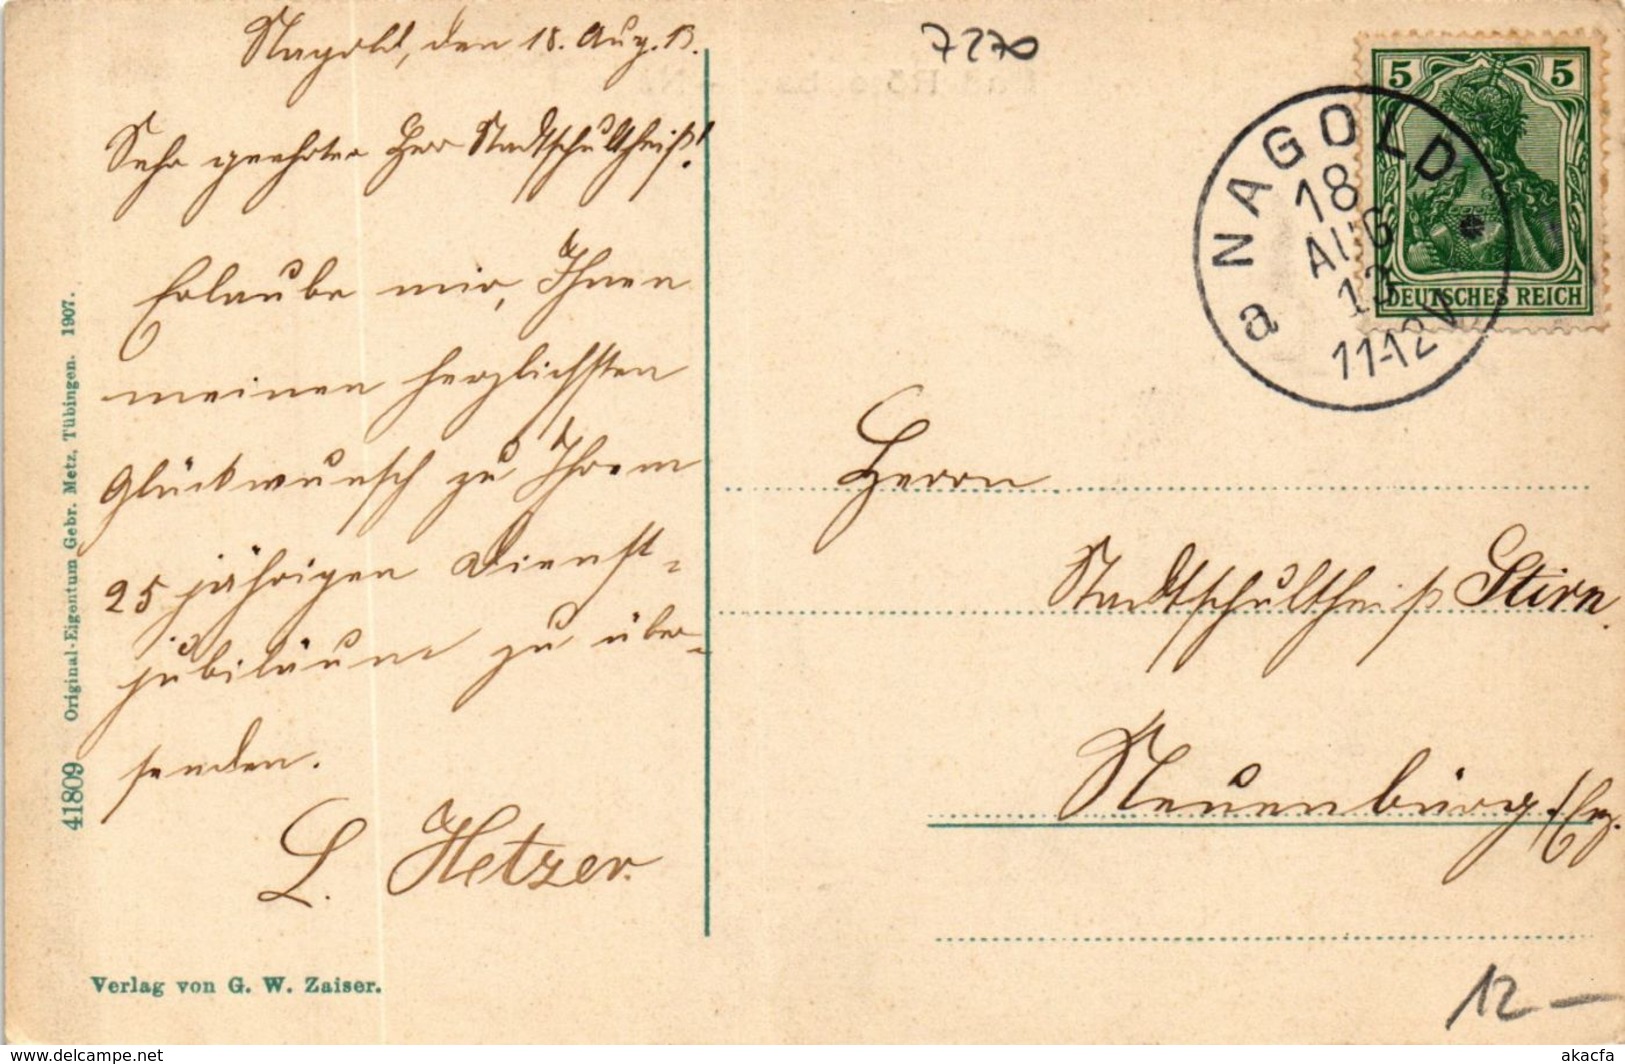 Nagold, den 18. Aug. 13.
Sehr geehrter Herr Stadtschultheiß!
Erlaube mir, Ihnen
meinen herzlichsten
Glückwunsch zu Ihrem
25 jährigen Dienst-
jubiläum zu über-
senden.
L. Hetzer.
41809 Original-Eigentum Gebr. Metz, Tübingen. 1907.
Verlag von G. W. Zaiser.
7270
5 5
DEUTSCHES REICH
a NAGOLD
18
AUG
13
11-12V
Herrn
Stadtschultheiß Stirn
Neuenbürg
12 –
akpool.co.uk
akacfa